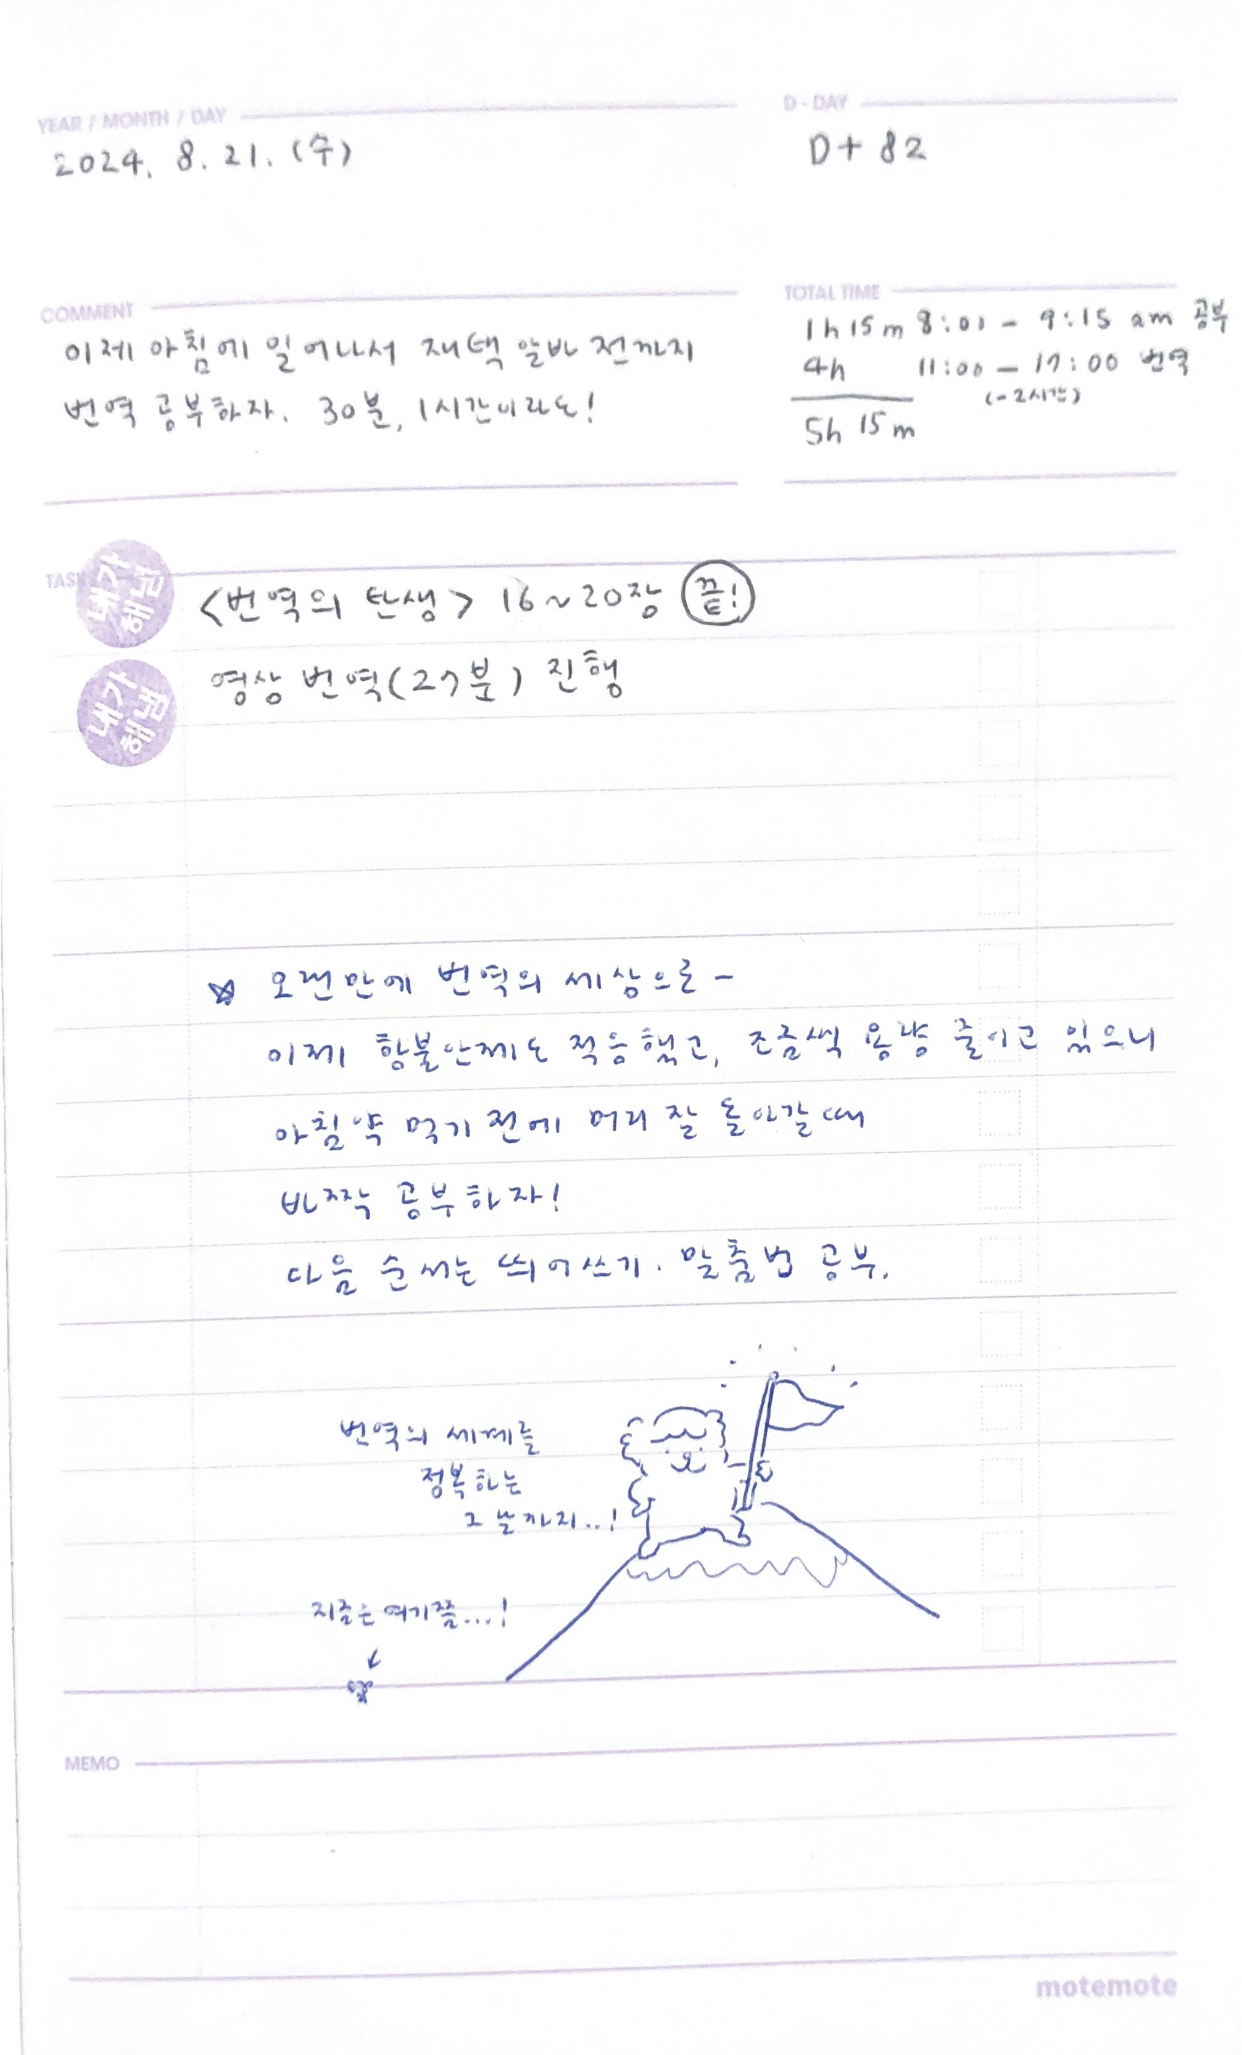 YEAR / MONTH / DAY
2024. 8. 21. (수)
D - DAY
D+82
COMMENT
이제 아침에 일어나서 재택 알바 전까지
번역 공부하자. 30분, 1시간이라도!
TOTAL TIME
1h 15m 8:01 - 9:15 am 공부
4h 11:00 - 17:00 번역
(-2시간)
5h 15m
TASKS
내가
해냄
<번역의 탄생> 16~20장 끝!
내가
해냄
영상 번역(27분) 진행
☆ 오랜만에 번역의 세상으로 -
이제 항불안제도 적응했고, 조금씩 용량 줄이고 있으니
아침약 먹기 전에 머리 잘 돌아갈 때
바짝 공부하자!
다음 순서는 띄어쓰기. 맞춤법 공부.
번역의 세계를
정복하는
그 날까지..!
지금은 여기쯤...!
MEMO
motemote